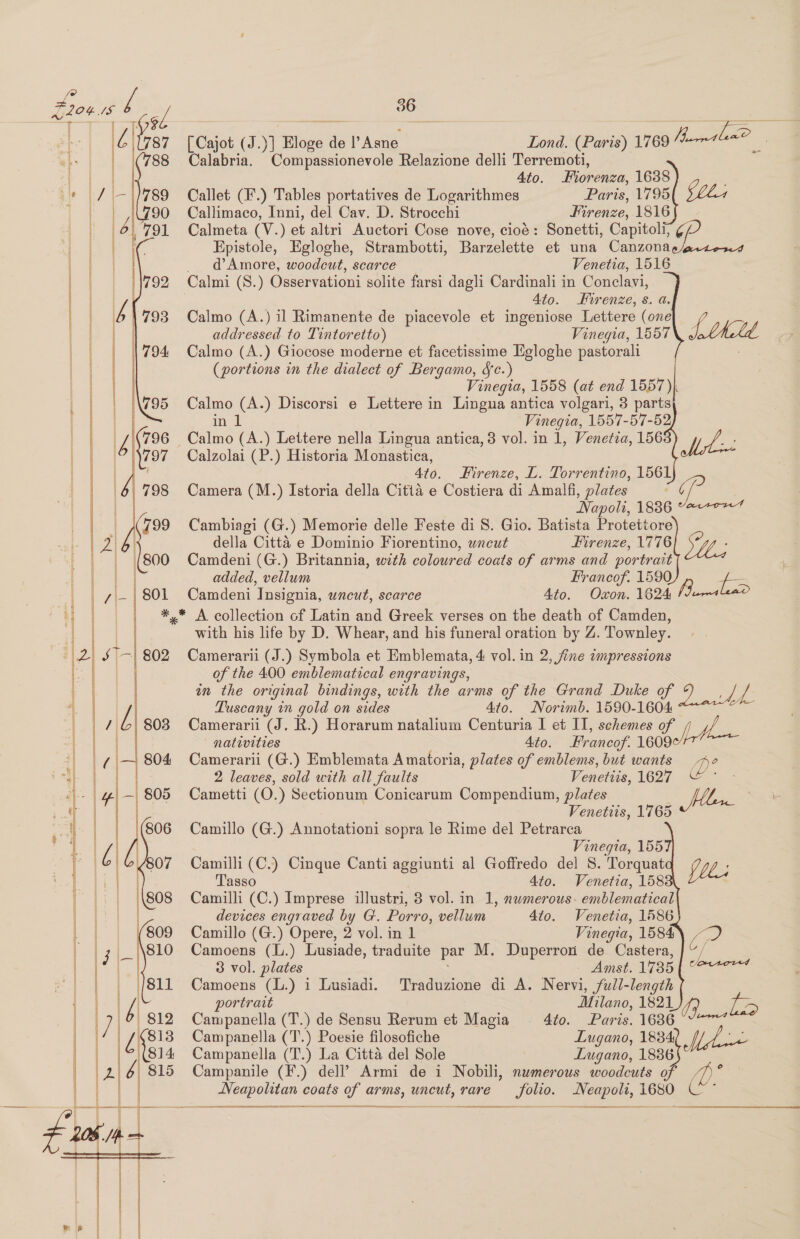 £204 15 6
36
787 [Cajot (J.)] Eloge de l’Asne Lond. (Paris) 1769
788 Calabria. Compassionevole Relazione delli Terremoti,
4to. Fiorenza, 1638
789 Callet (F.) Tables portatives de Logarithmes Paris, 1795
790 Callimaco, Inni, del Cav. D. Strocchi Firenze, 1816
791 Calmeta (V.) et altri Auctori Cose nove, cioé: Sonetti, Capitoli,
Epistole, Egloghe, Strambotti, Barzelette et una Canzona
d’Amore, woodcut, scarce Venetia, 1516
792 Calmi (S.) Osservationi solite farsi dagli Cardinali in Conclavi,
4to. Firenze, s. a.
793 Calmo (A.) il Rimanente de piacevole et ingeniose Lettere (one
addressed to Tintoretto) Vinegia, 1557
794 Calmo (A.) Giocose moderne et facetissime Egloghe pastorali
(portions in the dialect of Bergamo, &c.)
Vinegia, 1558 (at end 1557)
795 Calmo (A.) Discorsi e Lettere in Lingua antica volgari, 3 parts
in 1 Vinegia, 1557-57-52
796 Calmo (A.) Lettere nella Lingua antica, 3 vol. in 1, Venetia, 1563
797 Calzolai (P.) Historia Monastica,
4to. Firenze, L. Torrentino, 1561
798 Camera (M.) Istoria della Città e Costiera di Amalfi, plates
Napoli, 1836
799 Cambiagi (G.) Memorie delle Feste di S. Gio. Batista Protettore
della Città e Dominio Fiorentino, uncut Firenze, 1776
800 Camdeni (G.) Britannia, with coloured coats of arms and portrait
added, vellum Francof. 1590
801 Camdeni Insignia, uncut, scarce 4to. Oxon. 1624
*** A collection of Latin and Greek verses on the death of Camden,
with his life by D. Whear, and his funeral oration by Z. Townley.
802 Camerarii (J.) Symbola et Emblemata, 4 vol. in 2, fine impressions
of the 400 emblematical engravings,
in the original bindings, with the arms of the Grand Duke of
Tuscany in gold on sides 4to. Norimb. 1590-1604
803 Camerarii (J. R.) Horarum natalium Centuria I et II, schemes of
nativities 4to. Francof. 1609
804 Camerarii (G.) Emblemata Amatoria, plates of emblems, but wants
2 leaves, sold with all faults Venetiis, 1627
805 Cametti (O.) Sectionum Conicarum Compendium, plates
Venetiis, 1765
806 Camillo (G.) Annotationi sopra le Rime del Petrarca
Vinegia, 1557
807 Camilli (C.) Cinque Canti aggiunti al Goffredo del S. Torquato
Tasso 4to. Venetia, 1583
808 Camilli (C.) Imprese illustri, 3 vol. in 1, numerous emblematical
devices engraved by G. Porro, vellum 4to. Venetia, 1586
809 Camillo (G.) Opere, 2 vol. in 1 Vinegia, 1584
810 Camoens (L.) Lusiade, traduite par M. Duperron de Castera,
3 vol. plates Amst. 1735
811 Camoens (L.) i Lusiadi. Traduzione di A. Nervi, full-length
portrait Milano, 1821
812 Campanella (T.) de Sensu Rerum et Magia 4to. Paris. 1636
813 Campanella (T.) Poesie filosofiche Lugano, 1834
814 Campanella (T.) La Città del Sole Lugano, 1836
815 Campanile (F.) dell’ Armi de i Nobili, numerous woodcuts of
Neapolitan coats of arms, uncut, rare folio. Neapoli, 1680